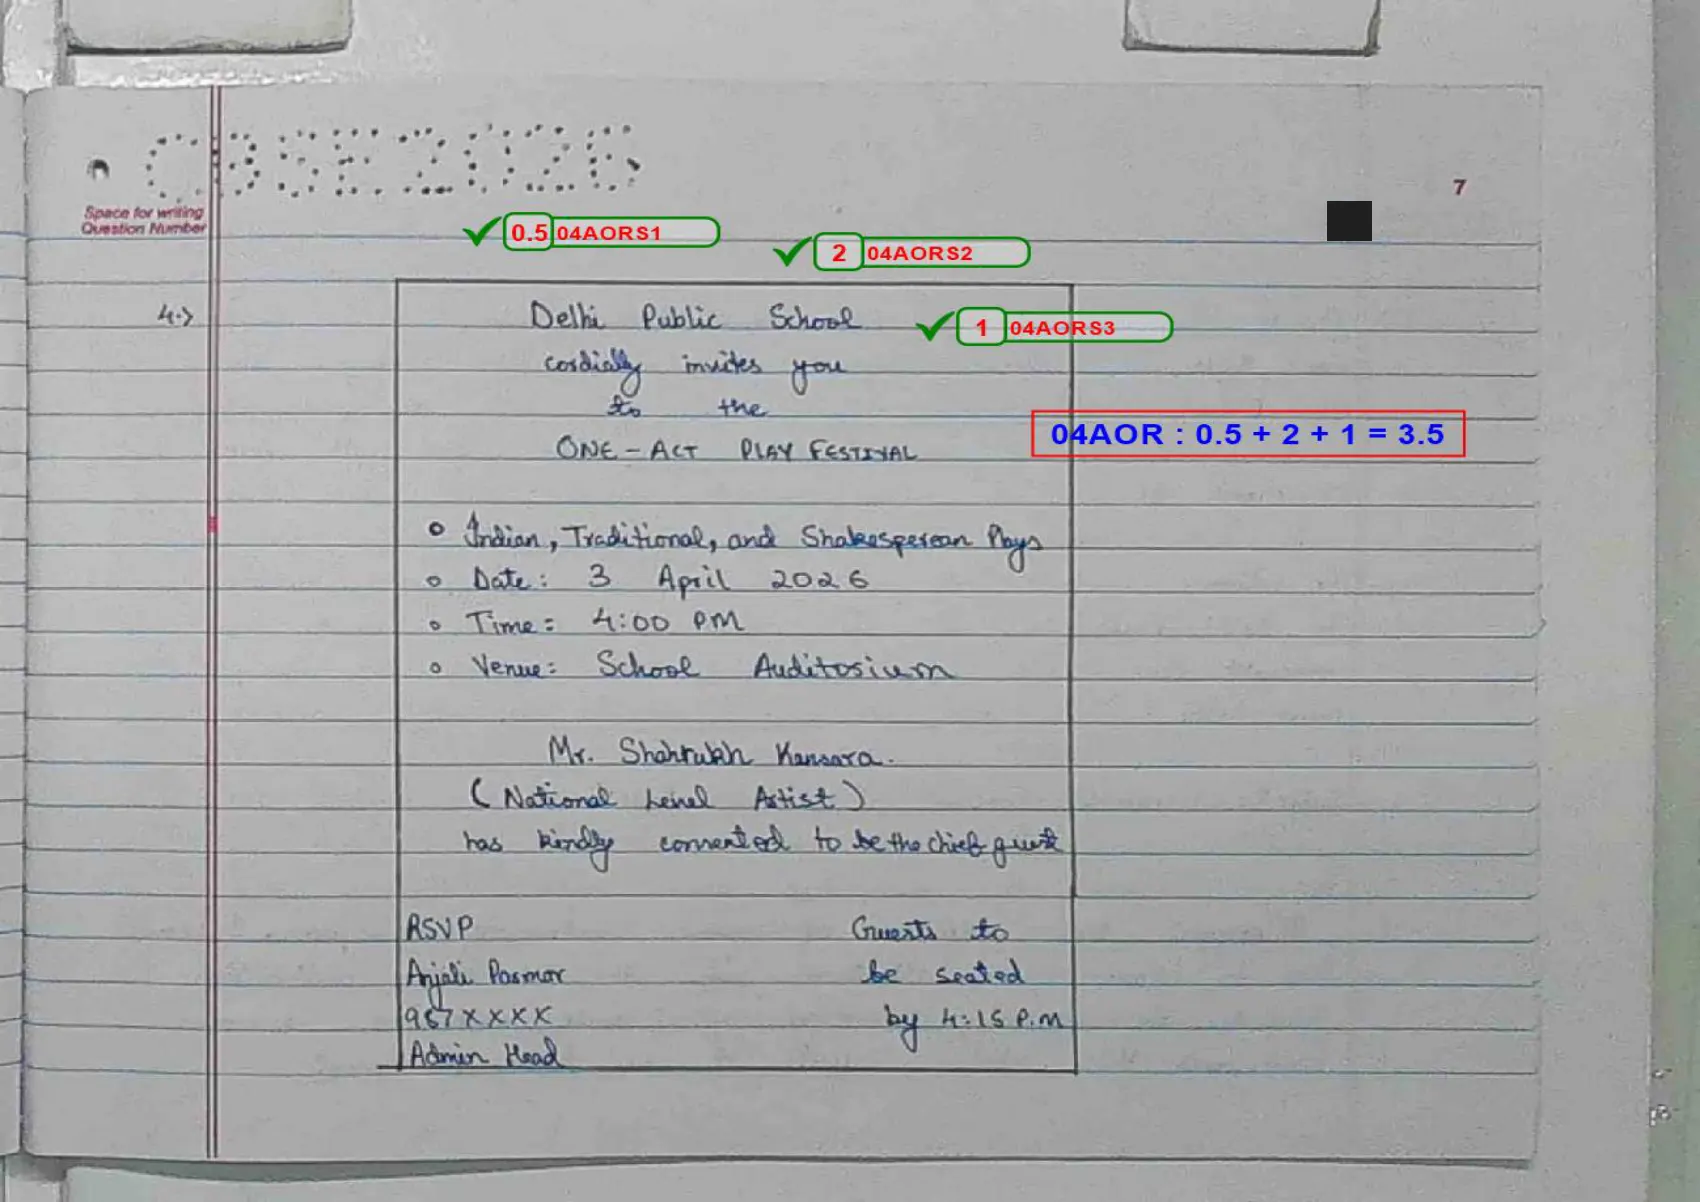 CBSE2026
7
Space for writing
Question Number
0.5 04AORS1
2 04AORS2
4.>
Delhi Public School
1 04AORS3
cordially invites you
to the
04AOR : 0.5 + 2 + 1 = 3.5
ONE-ACT PLAY FESTIVAL
Indian, Traditional, and Shakesperean Plays
Date: 3 April 2026
Time: 4:00 PM
Venue: School Auditorium
Mr. Shahrukh Kansara.
(National Level Artist)
has kindly consented to be the chief guest
RSVP Guests to
Anjali Parmar be seated
987XXXX by 4:15 P.M
Admin Head